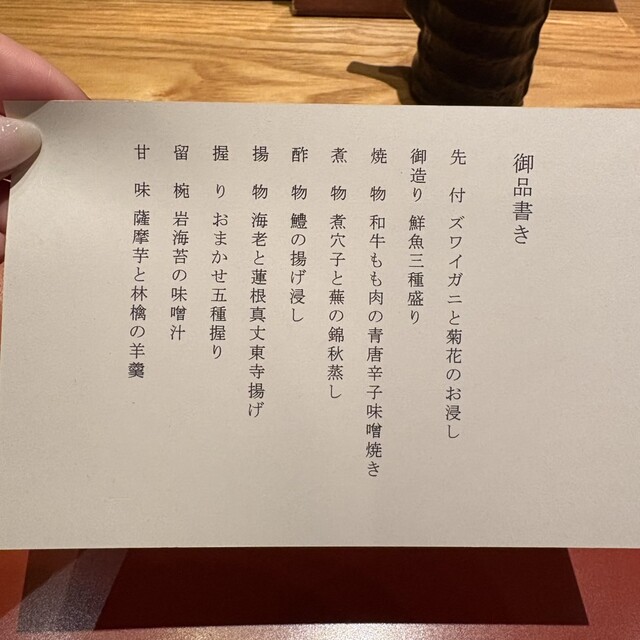 御品書き
先付 ズワイガニと菊花のお浸し
御造り 鮮魚三種盛り
焼物 和牛もも肉の青唐辛子味噌焼き
煮物 煮穴子と蕪の錦秋蒸し
酢物 鱧の揚げ浸し
揚物 海老と蓮根真丈東寺揚げ
握り おまかせ五種握り
留椀 岩海苔の味噌汁
甘味 薩摩芋と林檎の羊羹